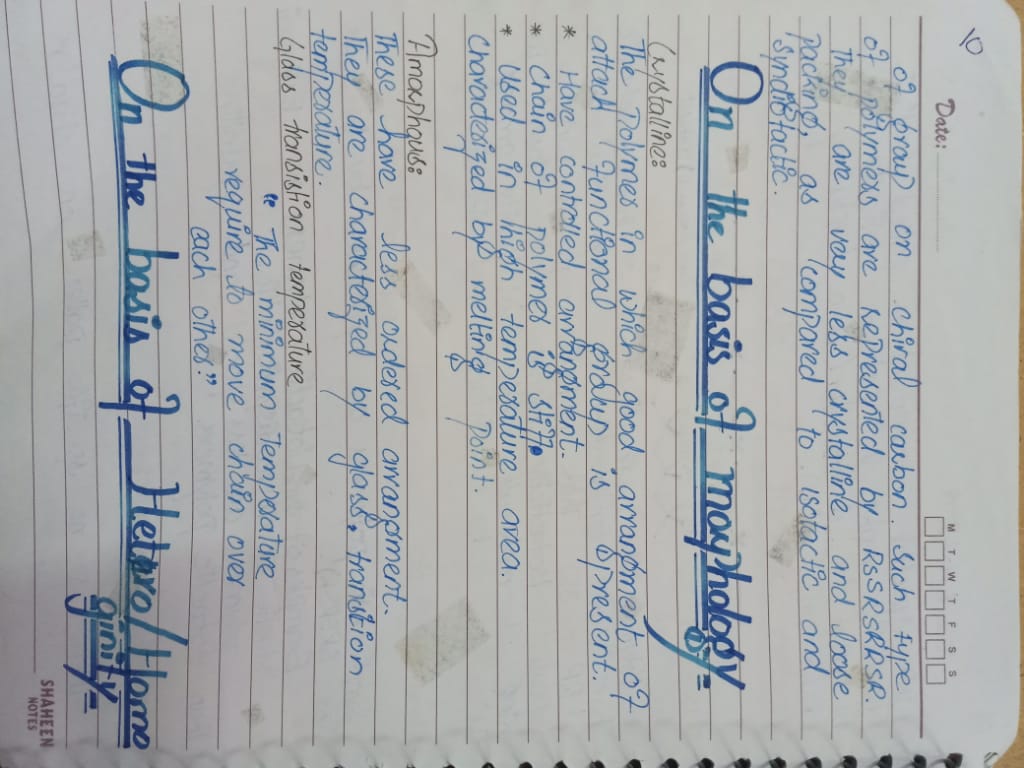 10
Date:
M T W T F S S
of group on chiral carbon. Such type
of polymers are represented by RSSRSRRSR.
They are very less crystalline and loose
packing, as compared to isotactic and
syndiotactic.
On the basis of morphology
Crystalline:
The polymer in which good arrangment of
attach functional groups is present.
* Have controlled arrangment.
* Chain of polymer is stiff.
* Used in high temperature area.
Characterized by melting point.
Amorphous:
These have less ordered arrangment.
They are charactorized by glass transition
temperature.
Glass transistion temperature
"The minimum temperature
require to move chain over
each other."
On the basis of Hetero/Homo
ginity
SHAHEEN
NOTES